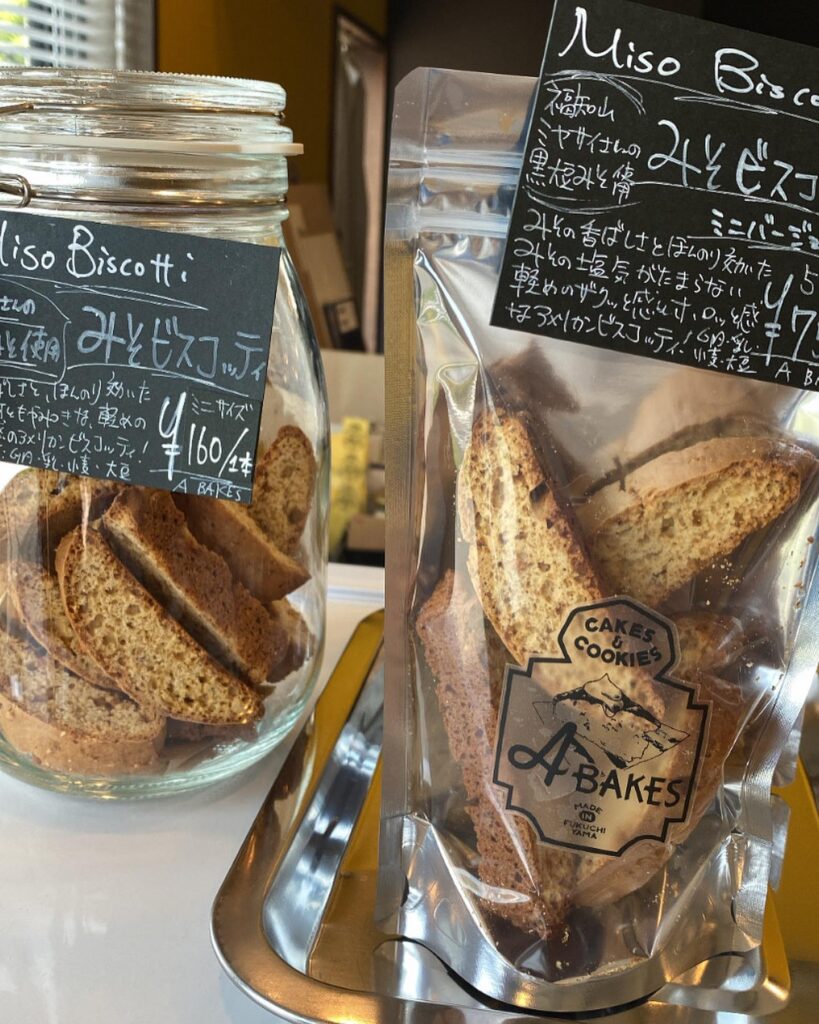 Miso Biscotti
さんの
みそ使用
みそビスコッティ
ばしさと、ほんのり効いた
軽めの
アメリカンビスコッティ！
卵・乳・小麦・大豆
ミニサイズ
¥160/1本
A BAKES
Miso Bisco
福知山
ミヤサイさんの
黒短みそ使用
みそビスコ
ミニバージョ
みその香ばしさとほんのり効いた
みその塩気がたまらない
軽めのザクッと感
なアメリカンビスコッティ！卵・乳・
小麦・大豆
5
¥7
A BA
CAKES
&
COOKIES
A BAKES
MADE
IN
FUKUCHI
YAMA